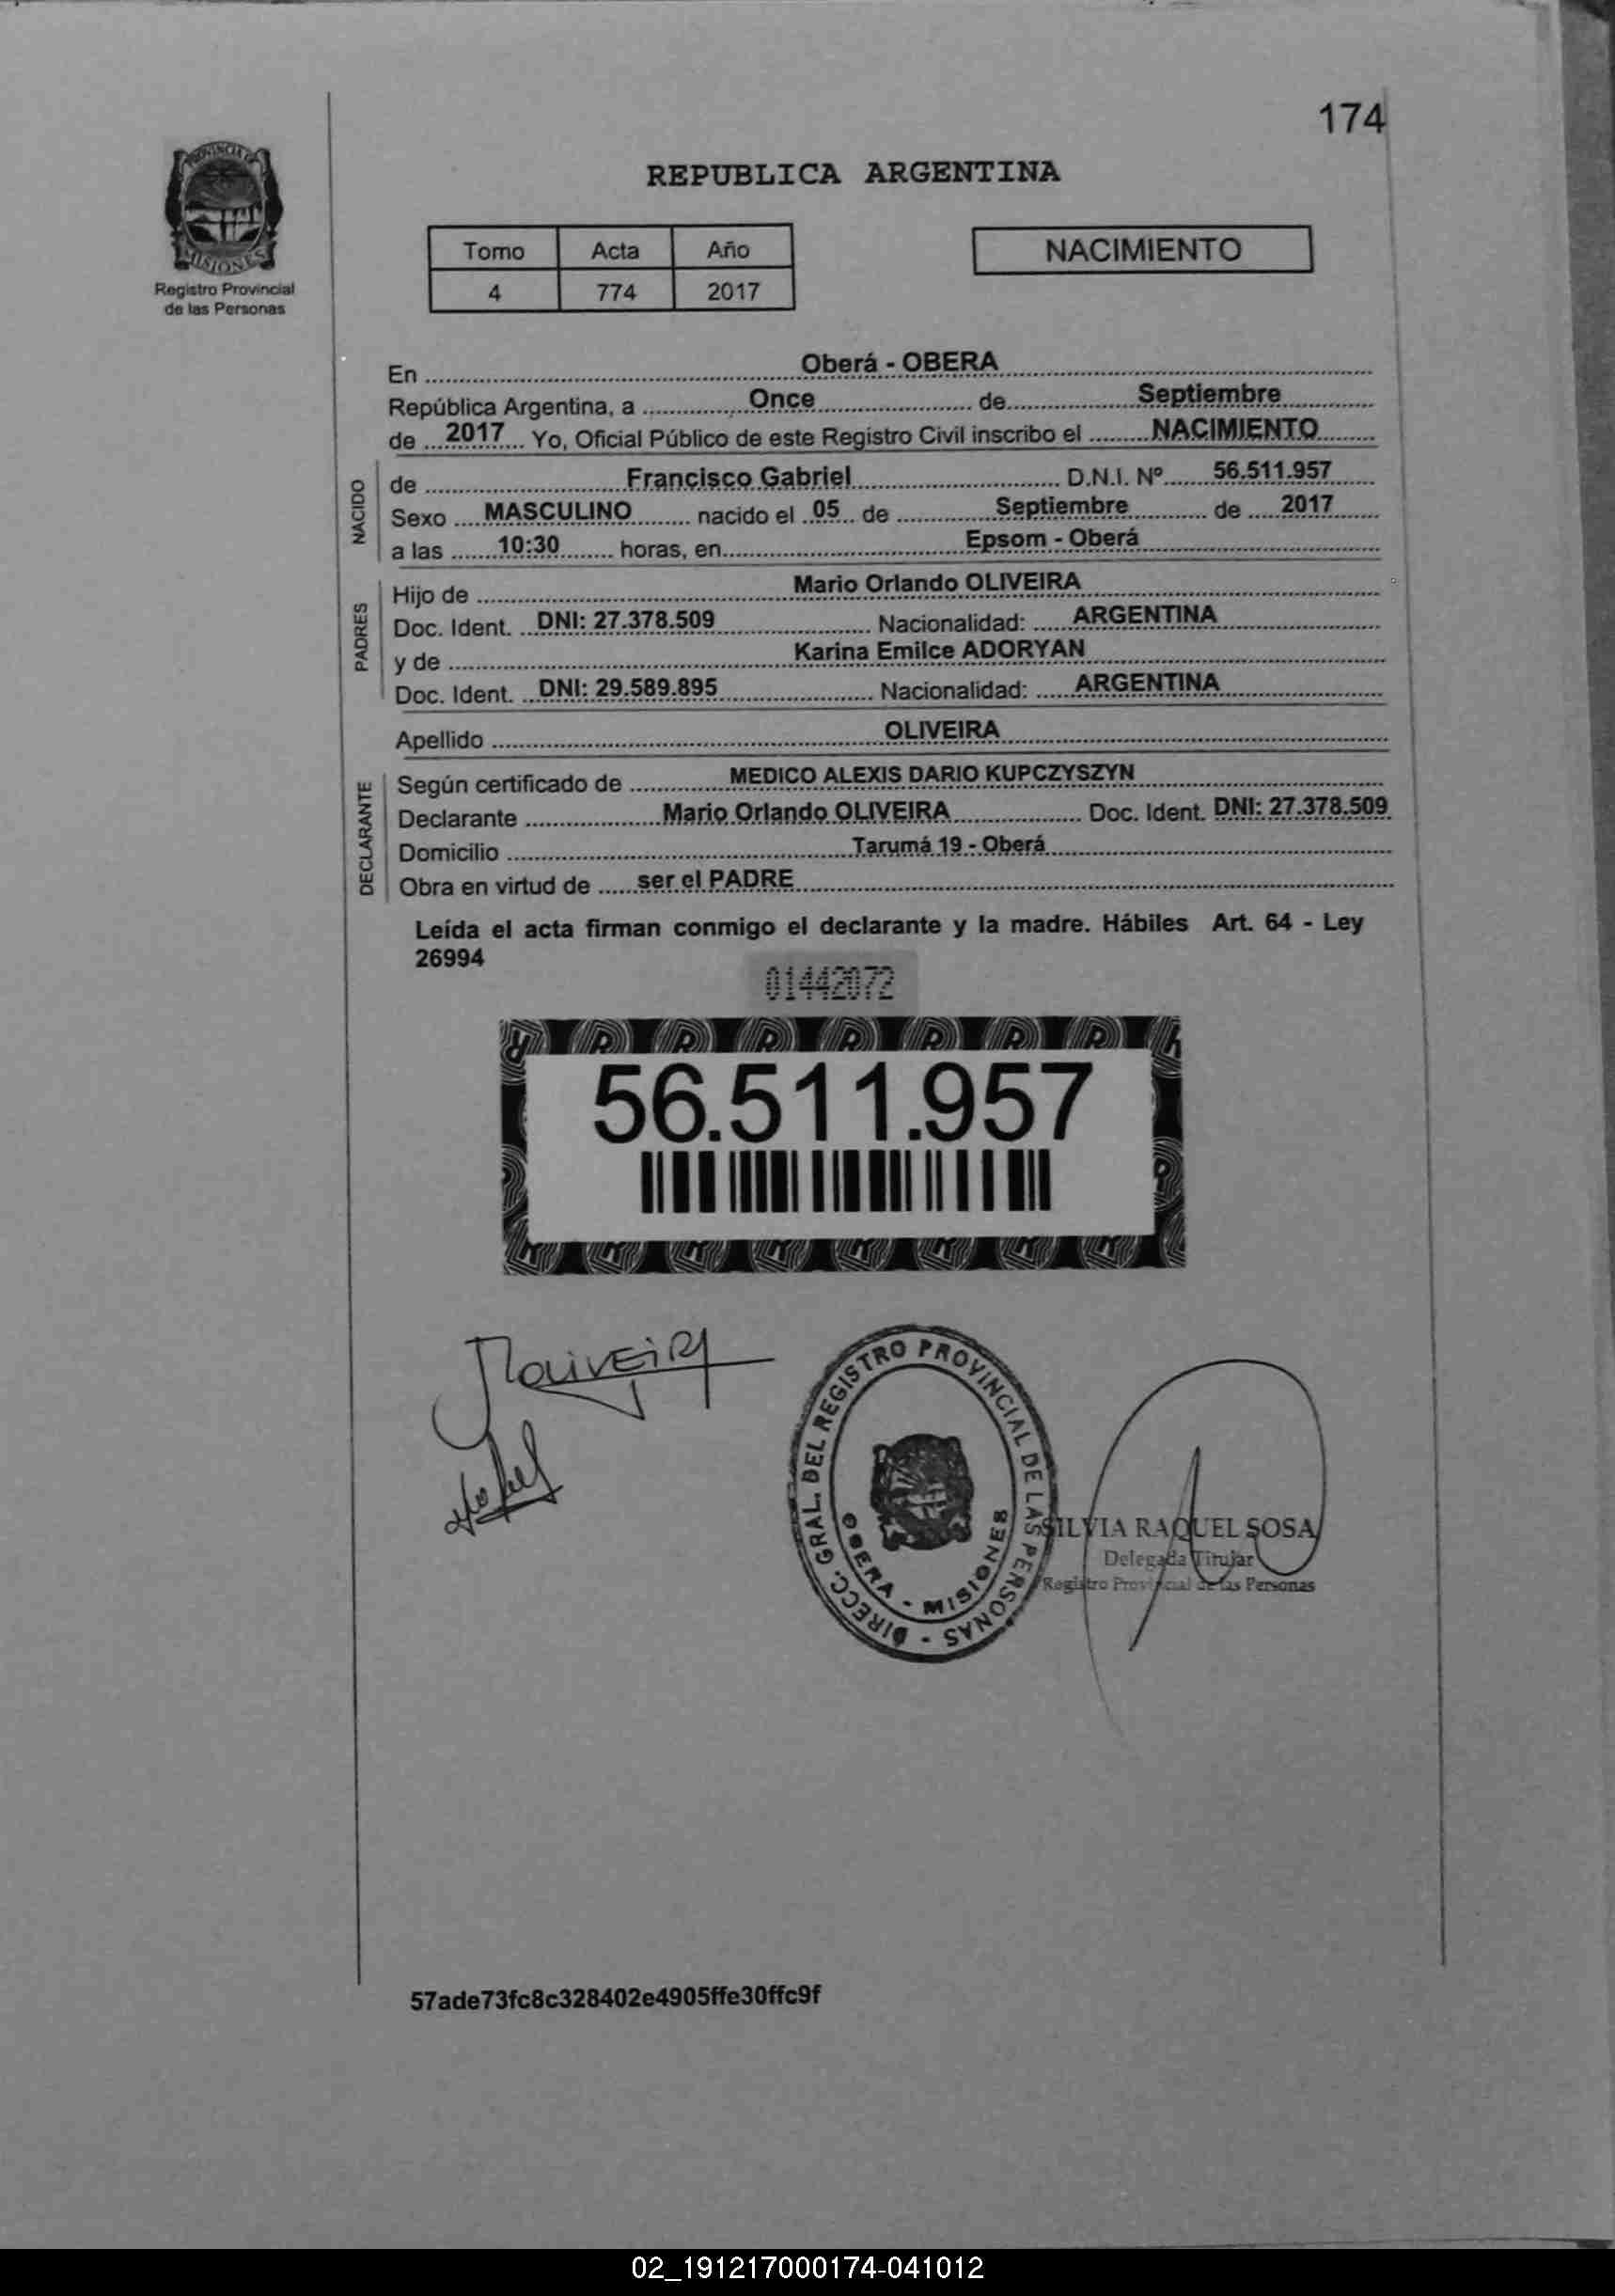 174
PROVINCIA DE
MISIONES
Registro Provincial
de las Personas
REPUBLICA ARGENTINA
Tomo Acta Año
4 774 2017
NACIMIENTO
En Oberá - OBERA
República Argentina, a Once de Septiembre
de 2017 Yo, Oficial Público de este Registro Civil inscribo el NACIMIENTO
NACIDO
de Francisco Gabriel D.N.I. Nº 56.511.957
Sexo MASCULINO nacido el 05 de Septiembre de 2017
a las 10:30 horas, en Epsom - Oberá
PADRES
Hijo de Mario Orlando OLIVEIRA
Doc. Ident. DNI: 27.378.509 Nacionalidad: ARGENTINA
y de Karina Emilce ADORYAN
Doc. Ident. DNI: 29.589.895 Nacionalidad: ARGENTINA
Apellido OLIVEIRA
DECLARANTE
Según certificado de MEDICO ALEXIS DARIO KUPCZYSZYN
Declarante Mario Orlando OLIVEIRA Doc. Ident. DNI: 27.378.509
Domicilio Tarumá 19 - Oberá
Obra en virtud de ser el PADRE
Leída el acta firman conmigo el declarante y la madre. Hábiles Art. 64 - Ley
26994
01442072
56.511.957
OLIVEIRA
DIRECC. GRAL. DEL REGISTRO PROVINCIAL DE LAS PERSONAS -
OBERA - MISIONES
SILVIA RAQUEL SOSA
Delegada Titular
Registro Provincial de las Personas
57ade73fc8c328402e4905ffe30ffc9f
02_191217000174-041012